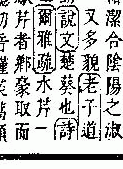 潔合陰陽之淑
又多貎老子道
說文楚葵也詩
爾雅疏水芹一
芹者鄉豪取而